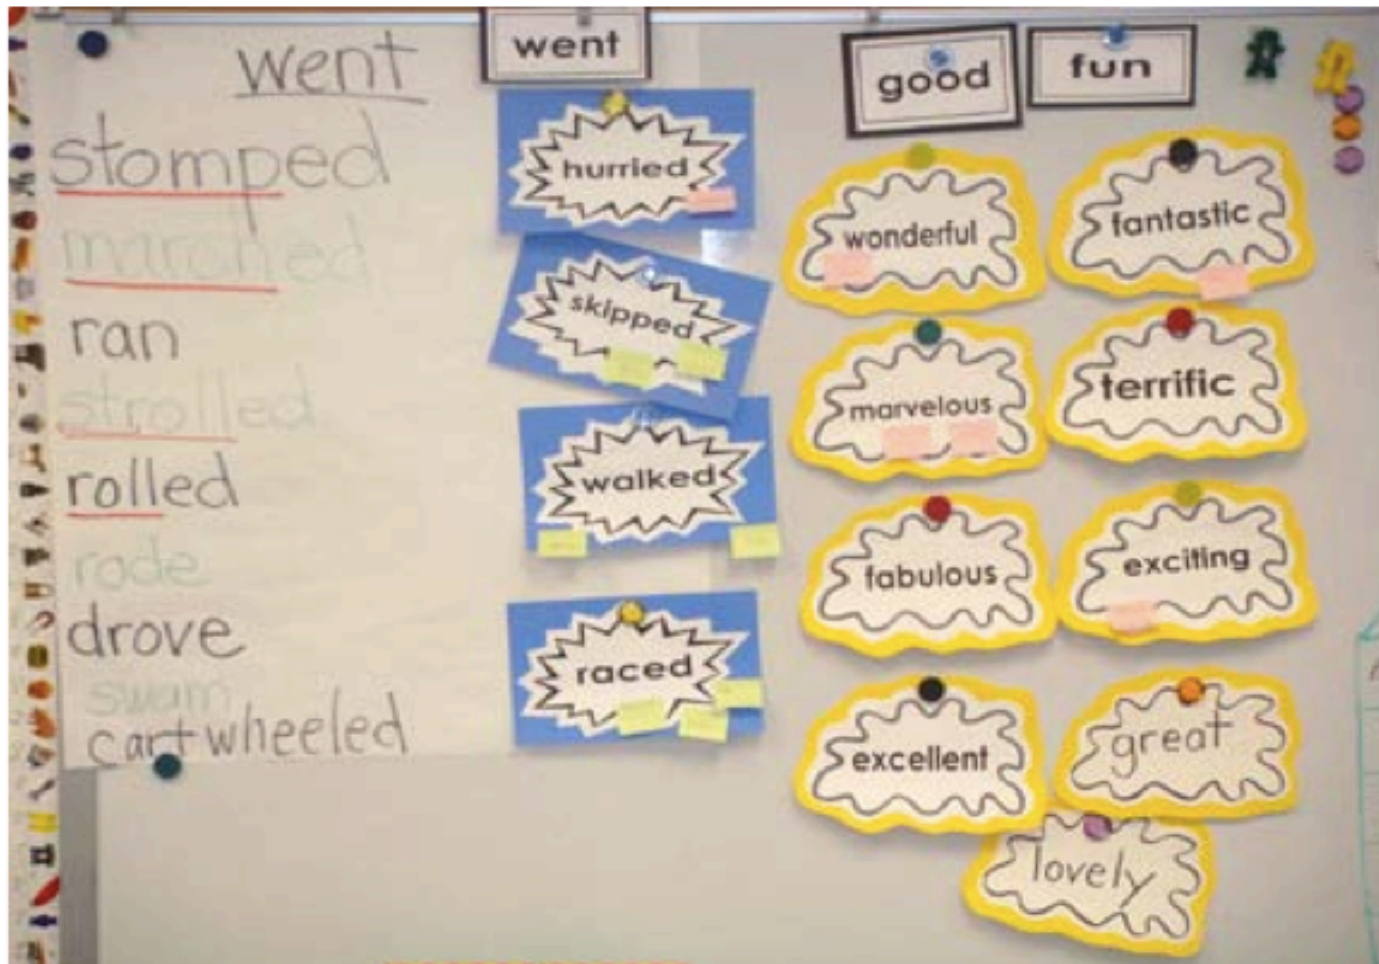 went
stomped
marched
ran
strolled
rolled
rode
drove
swam
cartwheeled
went
hurried
skipped
walked
raced
good
fun
wonderful
fantastic
marvelous
terrific
fabulous
exciting
excellent
great
lovely